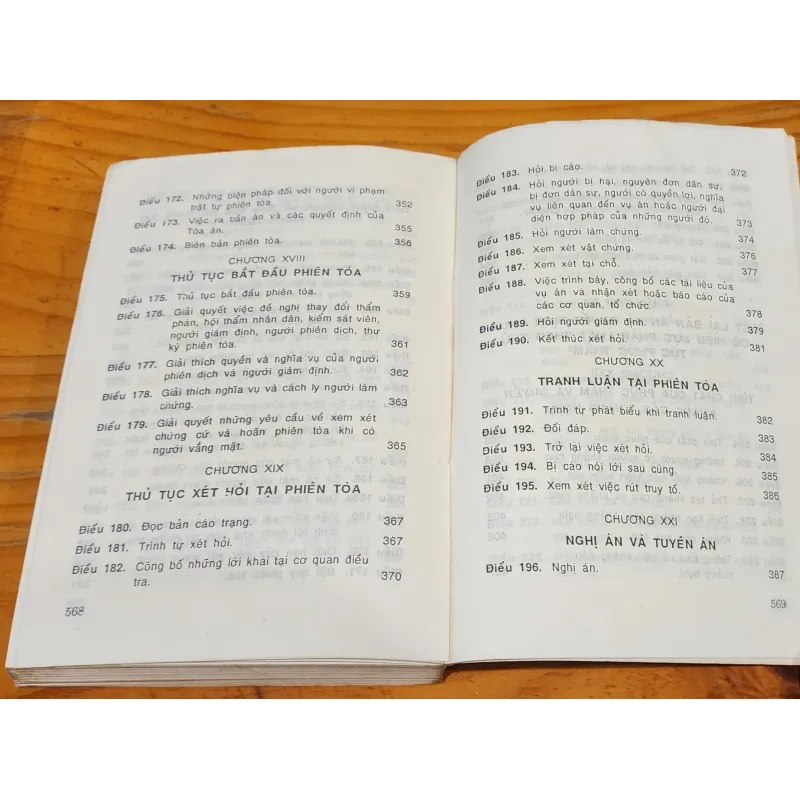 Điều 172. Những biện pháp đối với người vi phạm
trật tự phiên tòa. 352
Điều 173. Việc ra bản án và các quyết định của
Tòa án. 355
Điều 174. Biên bản phiên tòa. 356
CHƯƠNG XVIII
THỦ TỤC BẮT ĐẦU PHIÊN TÒA
Điều 175. Thủ tục bắt đầu phiên tòa. 359
Điều 176. Giải quyết việc đề nghị thay đổi thẩm
phán, hội thẩm nhân dân, kiểm sát viên,
người giám định, người phiên dịch, thư
ký phiên tòa. 361
Điều 177. Giải thích quyền và nghĩa vụ của người
phiên dịch và người giám định. 362
Điều 178. Giải thích nghĩa vụ và cách ly người làm
chứng. 363
Điều 179. Giải quyết những yêu cầu về xem xét
chứng cứ và hoãn phiên tòa khi có
người vắng mặt. 365
CHƯƠNG XIX
THỦ TỤC XÉT HỎI TẠI PHIÊN TÒA
Điều 180. Đọc bản cáo trạng. 367
Điều 181. Trình tự xét hỏi. 367
Điều 182. Công bố những lời khai tại cơ quan điều
tra. 370
568
Điều 183. Hỏi bị cáo. 372
Điều 184. Hỏi người bị hại, nguyên đơn dân sự,
bị đơn dân sự, người có quyền lợi, nghĩa
vụ liên quan đến vụ án hoặc người đại
diện hợp pháp của những người đó. 373
Điều 185. Hỏi người làm chứng. 374
Điều 186. Xem xét vật chứng. 376
Điều 187. Xem xét tại chỗ. 377
Điều 188. Việc trình bày, công bố các tài liệu của
vụ án và nhận xét hoặc báo cáo của
các cơ quan, tổ chức. 378
Điều 189. Hỏi người giám định. 379
Điều 190. Kết thúc xét hỏi. 381
CHƯƠNG XX
TRANH LUẬN TẠI PHIÊN TÒA
Điều 191. Trình tự phát biểu khi tranh luận. 382
Điều 192. Đối đáp. 383
Điều 193. Trở lại việc xét hỏi. 384
Điều 194. Bị cáo nói lời sau cùng. 385
Điều 195. Xem xét việc rút truy tố. 386
CHƯƠNG XXI
NGHỊ ÁN VÀ TUYÊN ÁN
Điều 196. Nghị án. 387
569